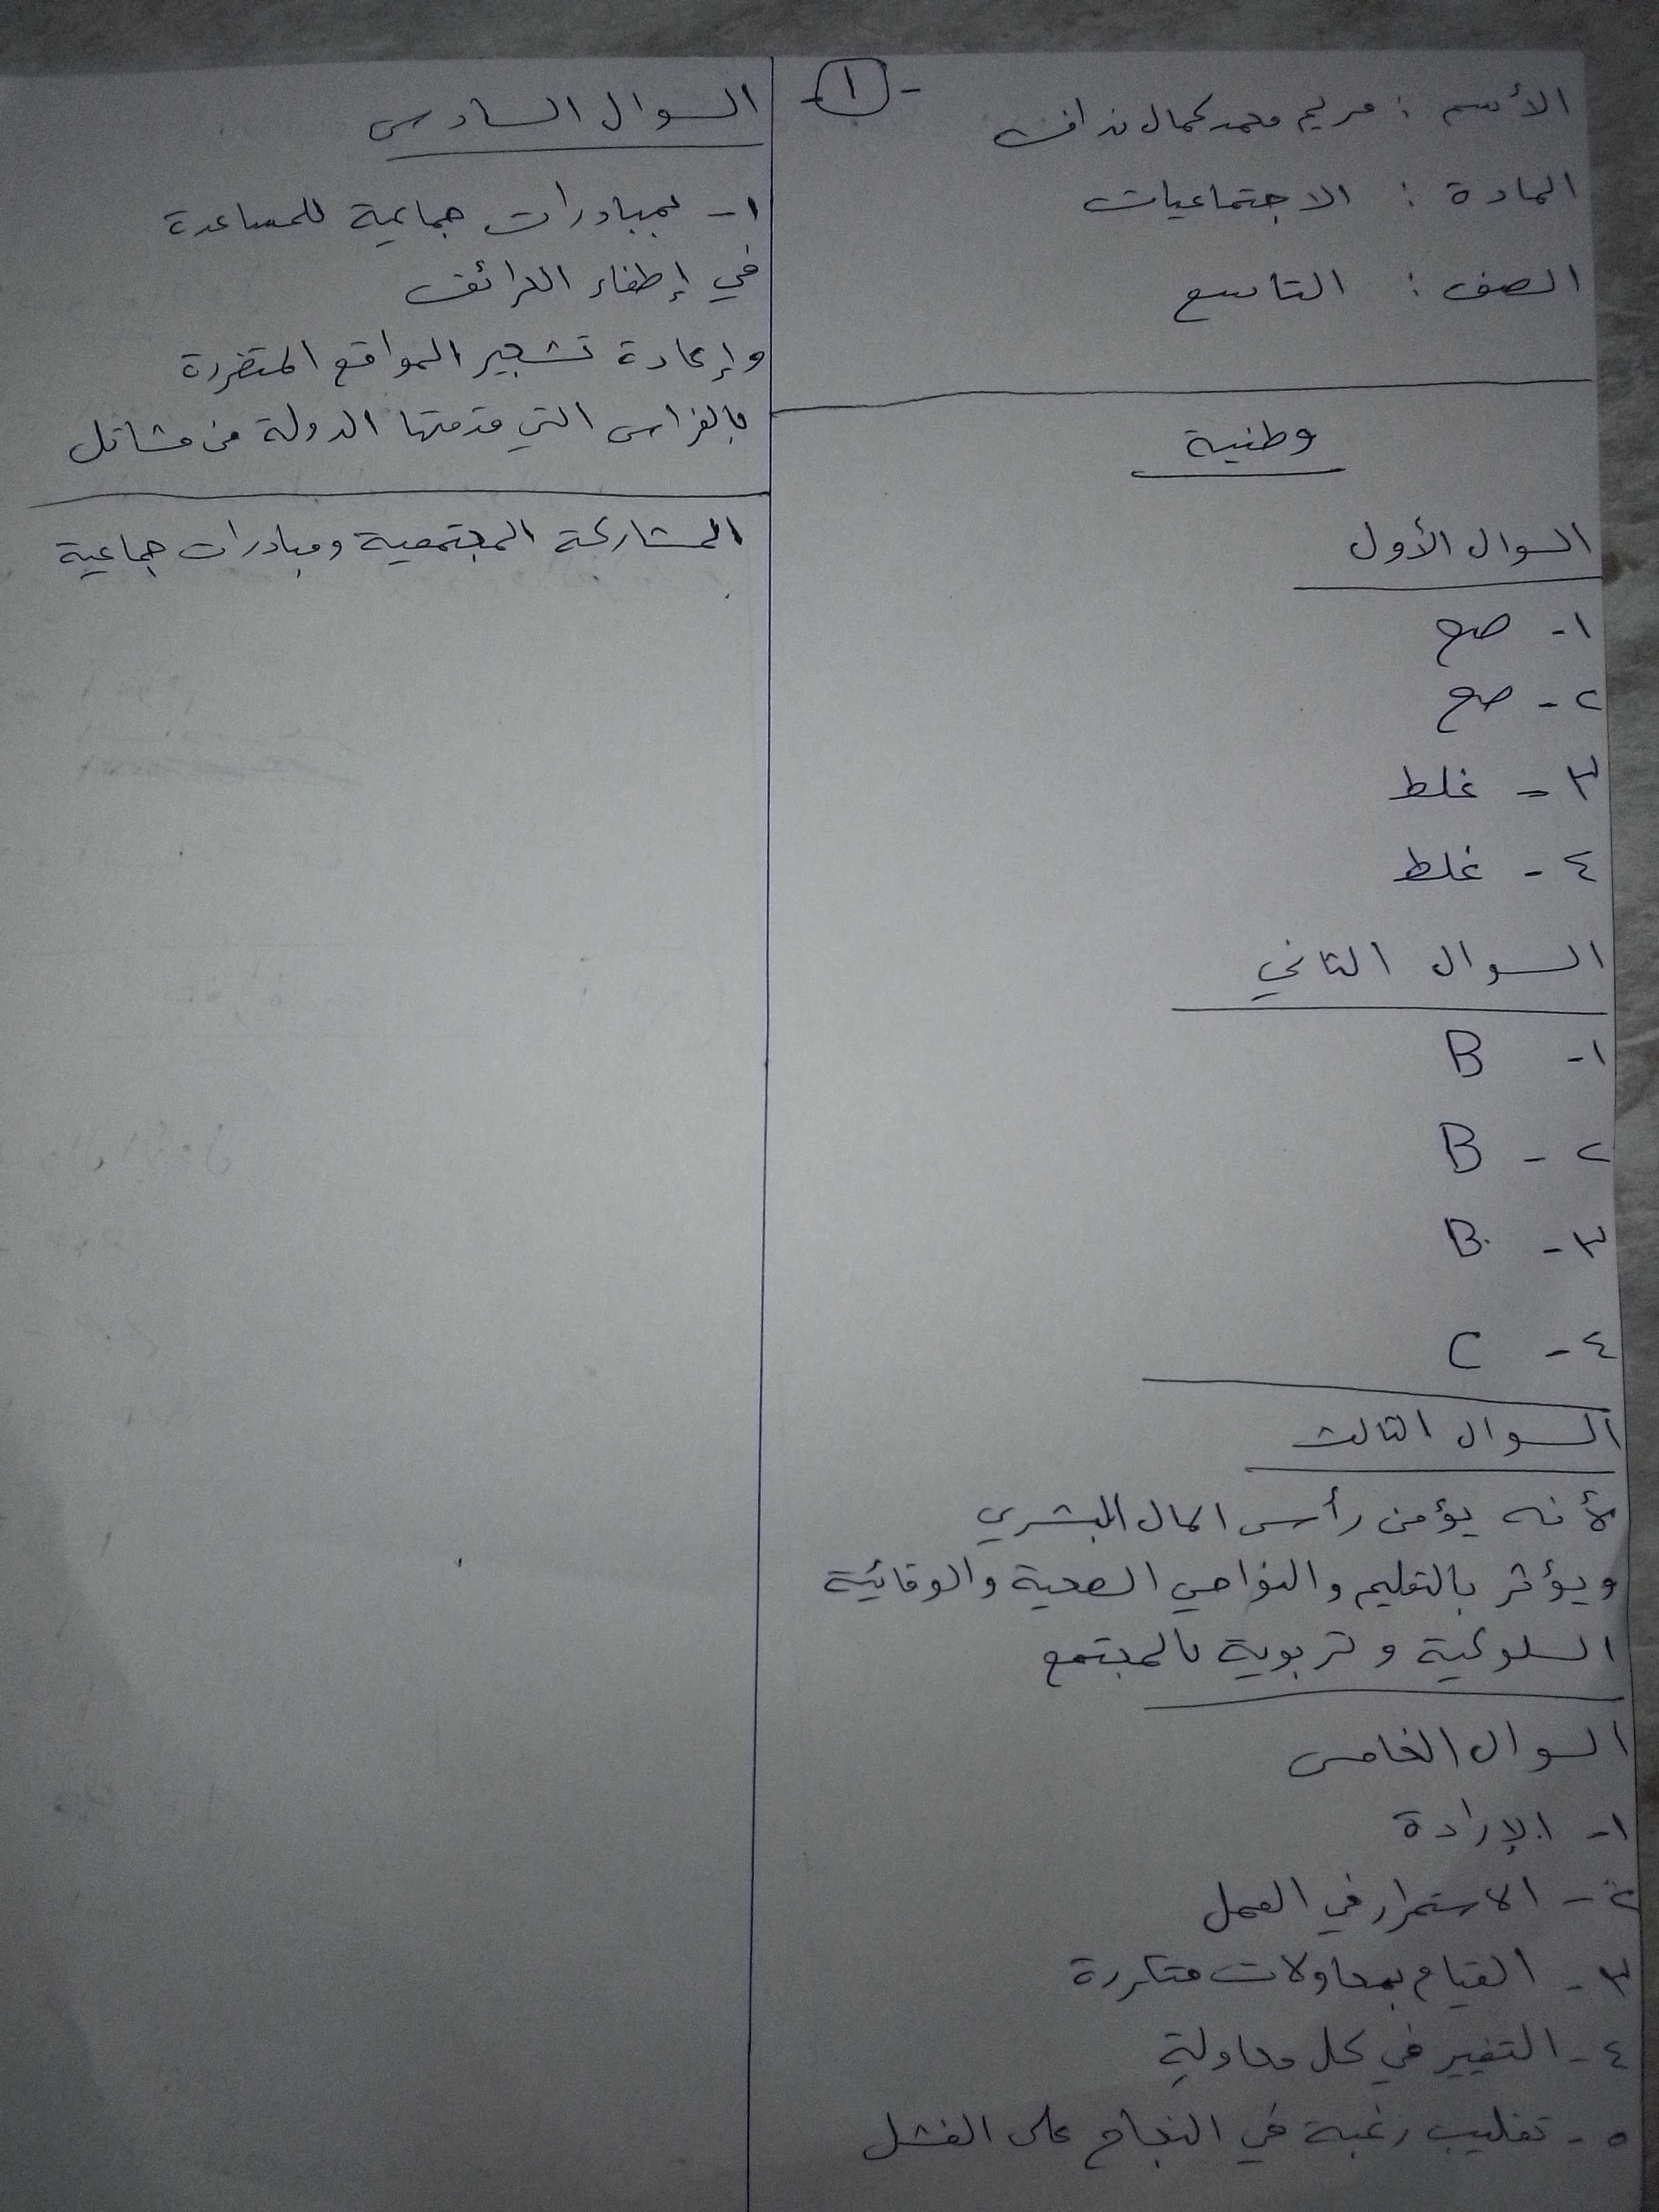 -١-
الأسم : مريم محمد كمال نداف
المادة : الاجتماعيات
الصف : التاسع
وطنية
السوال الأول
١- صح
٢- صح
٣- غلط
٤- غلط
السوال الثاني
١- B
٢- B
٣- B
٤- C
السوال الثالث
لأنه يؤمن رأس المال البشري
ويؤثر بالتعليم والنواحي الصحية والوقائية
السلوكية و تربوية بالمجتمع
السوال الخامس
١- الإرادة
٢- الاستمرار في العمل
٣- القيام بمحاولات متكررة
٤- التغيير في كل محاولة
٥- تغليب رغبة في النجاح على الفشل
السوال السادس
١- بمبادرات جماعية للمساعدة
في إطفاء الحرائق
وإعادة تشجير المواقع المتضررة
بالغراس التي قدمتها الدولة من مشاتل
المشاركة المجتمعية ومبادرات جماعية